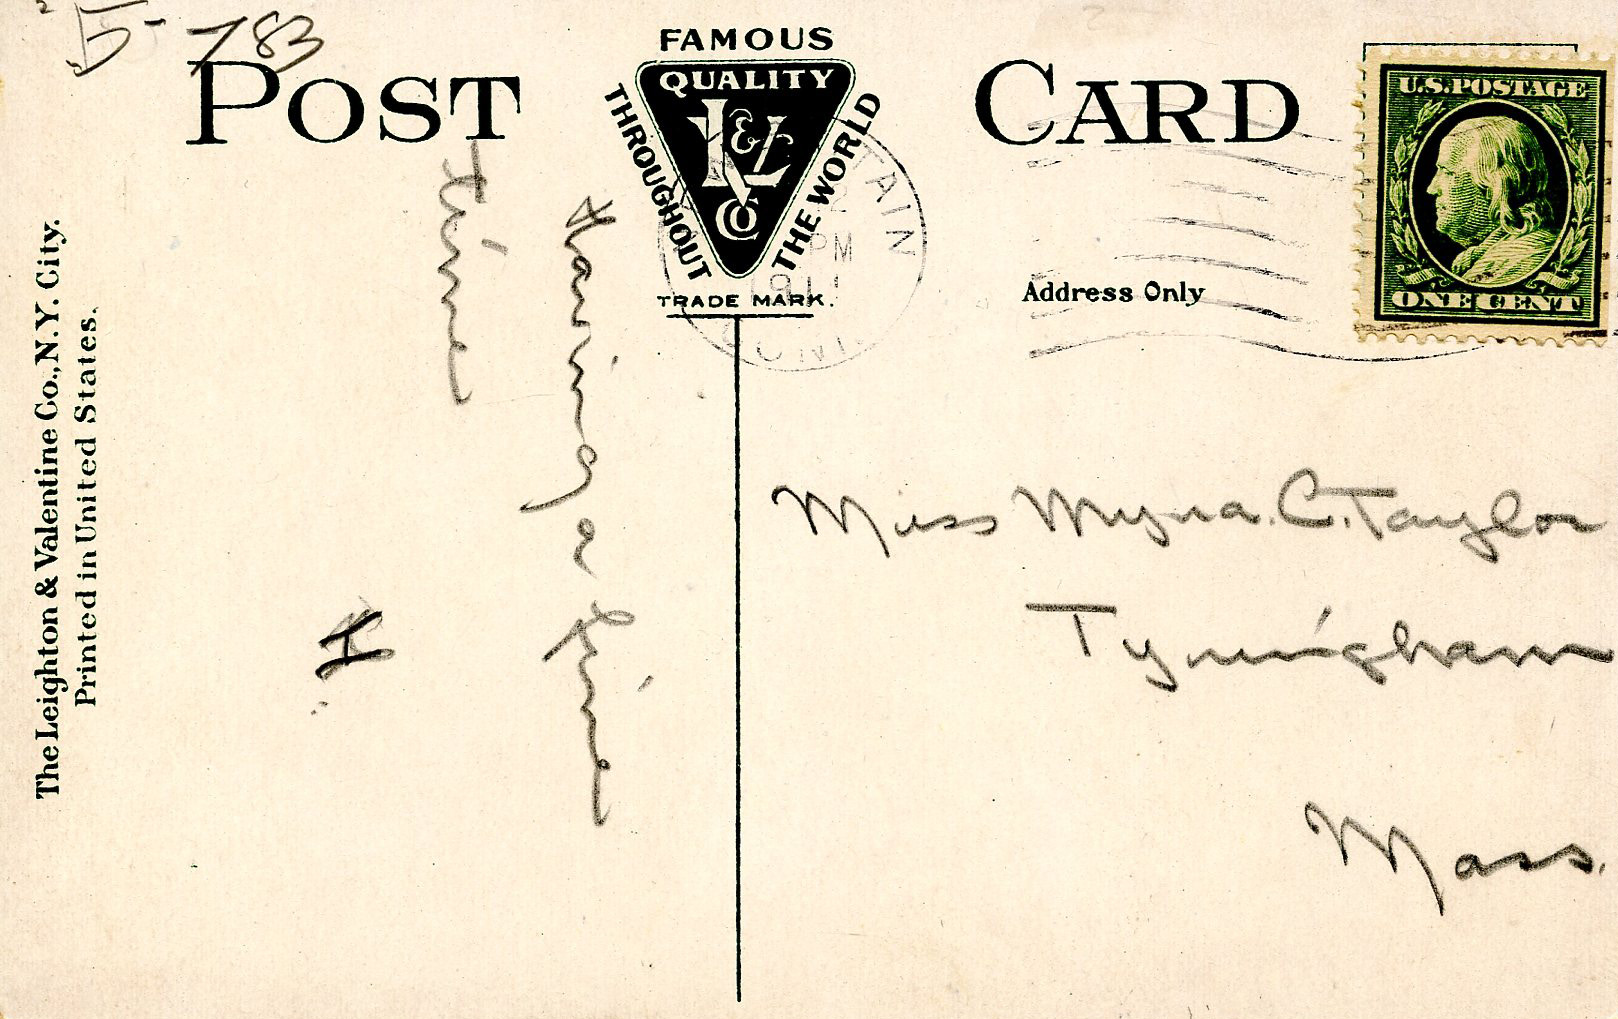 5- 783
POST CARD
FAMOUS
QUALITY
THROUGHOUT
THE WORLD
L&V
Co
TRADE MARK.
TAIN
PM
191
CONN.
Address Only
U.S. POSTAGE
ONE CENT
Having a fine
time
H.
Miss Myna. C. Taylor
Tyringham
Mass.
The Leighton & Valentine Co., N.Y. City.
Printed in United States.